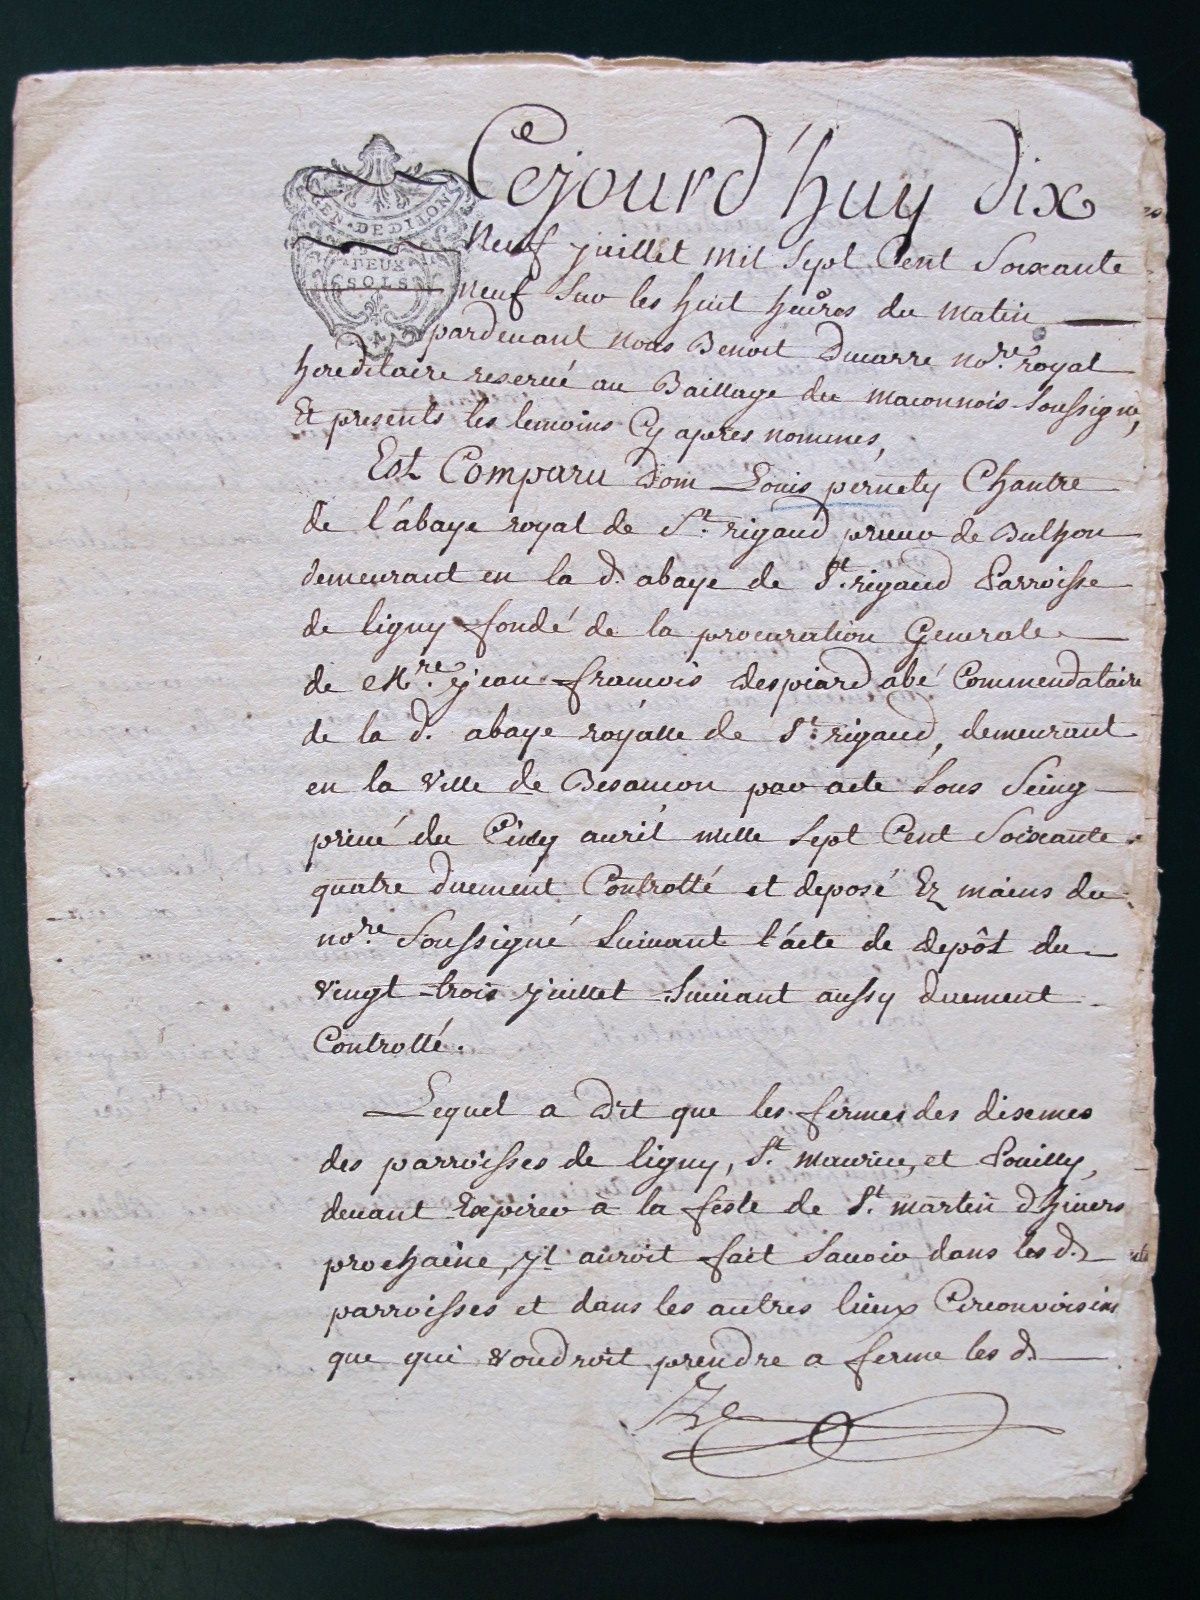 GEN. DE DIJON
DEUX
SOLS
Cejourd'huy dix
Neuf juillet mil Sept Cent Soixante
neuf Sur les huit heures du matin
pardevant nous Benoit Ducarre no.re royal
hereditaire reservé au Baillage du maconnois Soussigné,
Et presents les temoins Cy apres nommés,
Est Comparu Dom Louis pernety Chantre
de l'abaye royal de St. rigaud prieur de Bulhon
demeurant en la d. abaye de St. rigaud Parroisse
de ligny fondé de la procuration Generale
de Mr.e jean françois despiard abé Commendataire
de la d. abaye royalle de St. rigaud, demeurant
en la ville de Besançon par acte Sous Seing
privé du Cinq avril mille Sept Cent Soixante
quatre duement Controllé et deposé Ez mains du
no.re Soussigné Suivant l'acte de depôt du
vingt-trois juillet Suivant aussy duement
Controllé.
Lequel a dit que les fermes des dixmes
des parroisses de ligny, St. maurice, et Pouilly,
devant Expirer à la feste de St. martin d'hivers
prochaine, il auroit fait Savoir dans les d.
parroisses et dans les autres lieux Circonvoisins
que qui voudroit prendre a ferme les d.